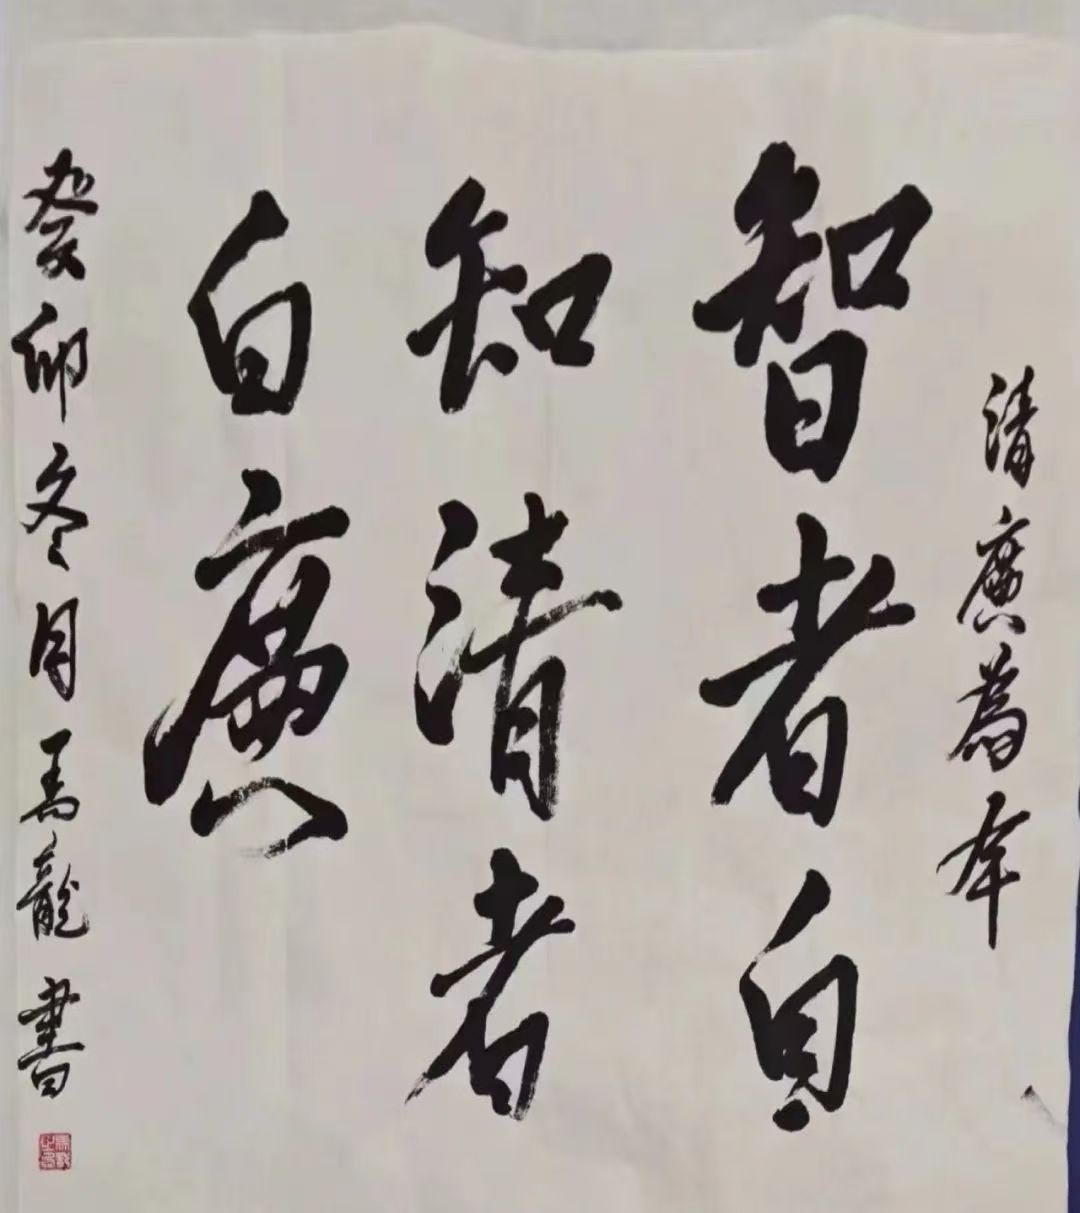 清廉為本
智者自
知清者
自廉
癸卯冬月馬龍書